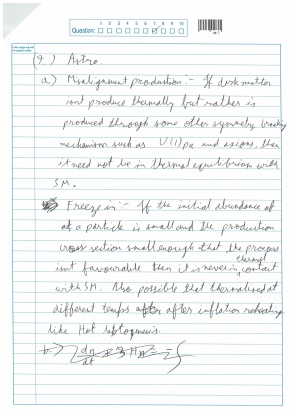 1 2 3 4 5 6 7 8 9 10
Question:
(7.) Astro.
a.) Misalignment production:- If dark matter
isnt produce thermally but rather is
produced through some other symmetry breaking
mechanism such as U(1)PQ and axions, then
it need not be in thermal equilibrium with
SM.
Freeze in:- If the initial abundance of
of a particle is small and the production
cross section small enough that the process
isnt favourable then it is never in thermal contact
with SM. Also possible that thermalised at
different temps after inflation reheating
like Hot leptogenesis.
b.)